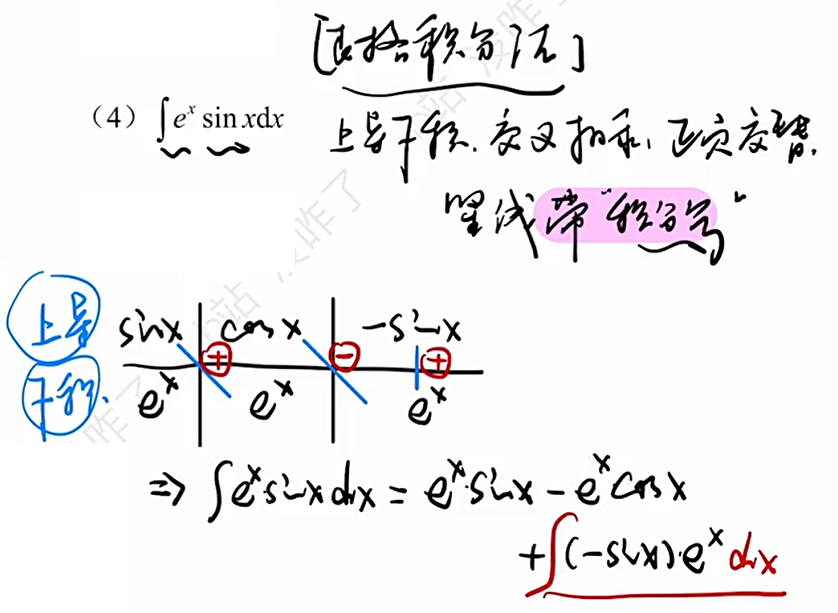 [表格积分法]
(4) ∫eˣ sin xdx
上导下积、交叉相乘、正负交替.
竖线带"积分号"
上导
下积.
sinx cosx -sinx
+ - +
eˣ eˣ eˣ
⇒ ∫eˣsinxdx = eˣ·sinx - eˣcosx
+∫(-sinx)·eˣdx